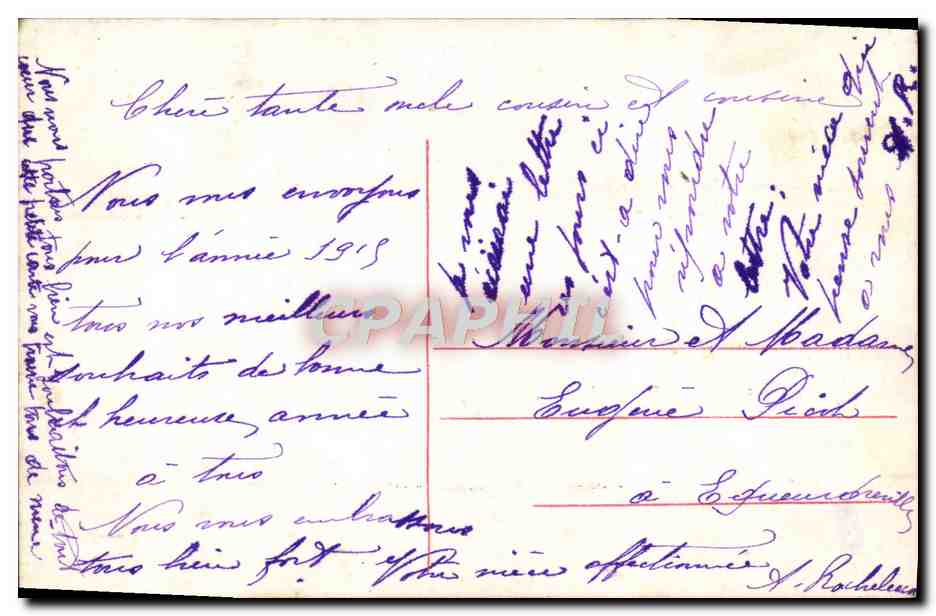 Chère tante oncle cousin et cousine
Nous vous envoyons
pour l'année 1915
tous nos meilleurs
souhaits de bonne
et heureuse année
à tous
Nous vous embrassons
tous bien fort. Votre nièce affectionnée
A. Rochelea
Nous nous portons tous bien et souhaitons de tout
cœur que cette petite carte vous trouve tous de meme
je vous
une lettre
ces jours ci
c'est-a dire
pour vous
répondre
a votre
lettre.
Votre nièce qui
pense souvent
a vous
A. R.
Monsieur et Madame
Eugène Picot
à Equeurdreville
CPAPHIL